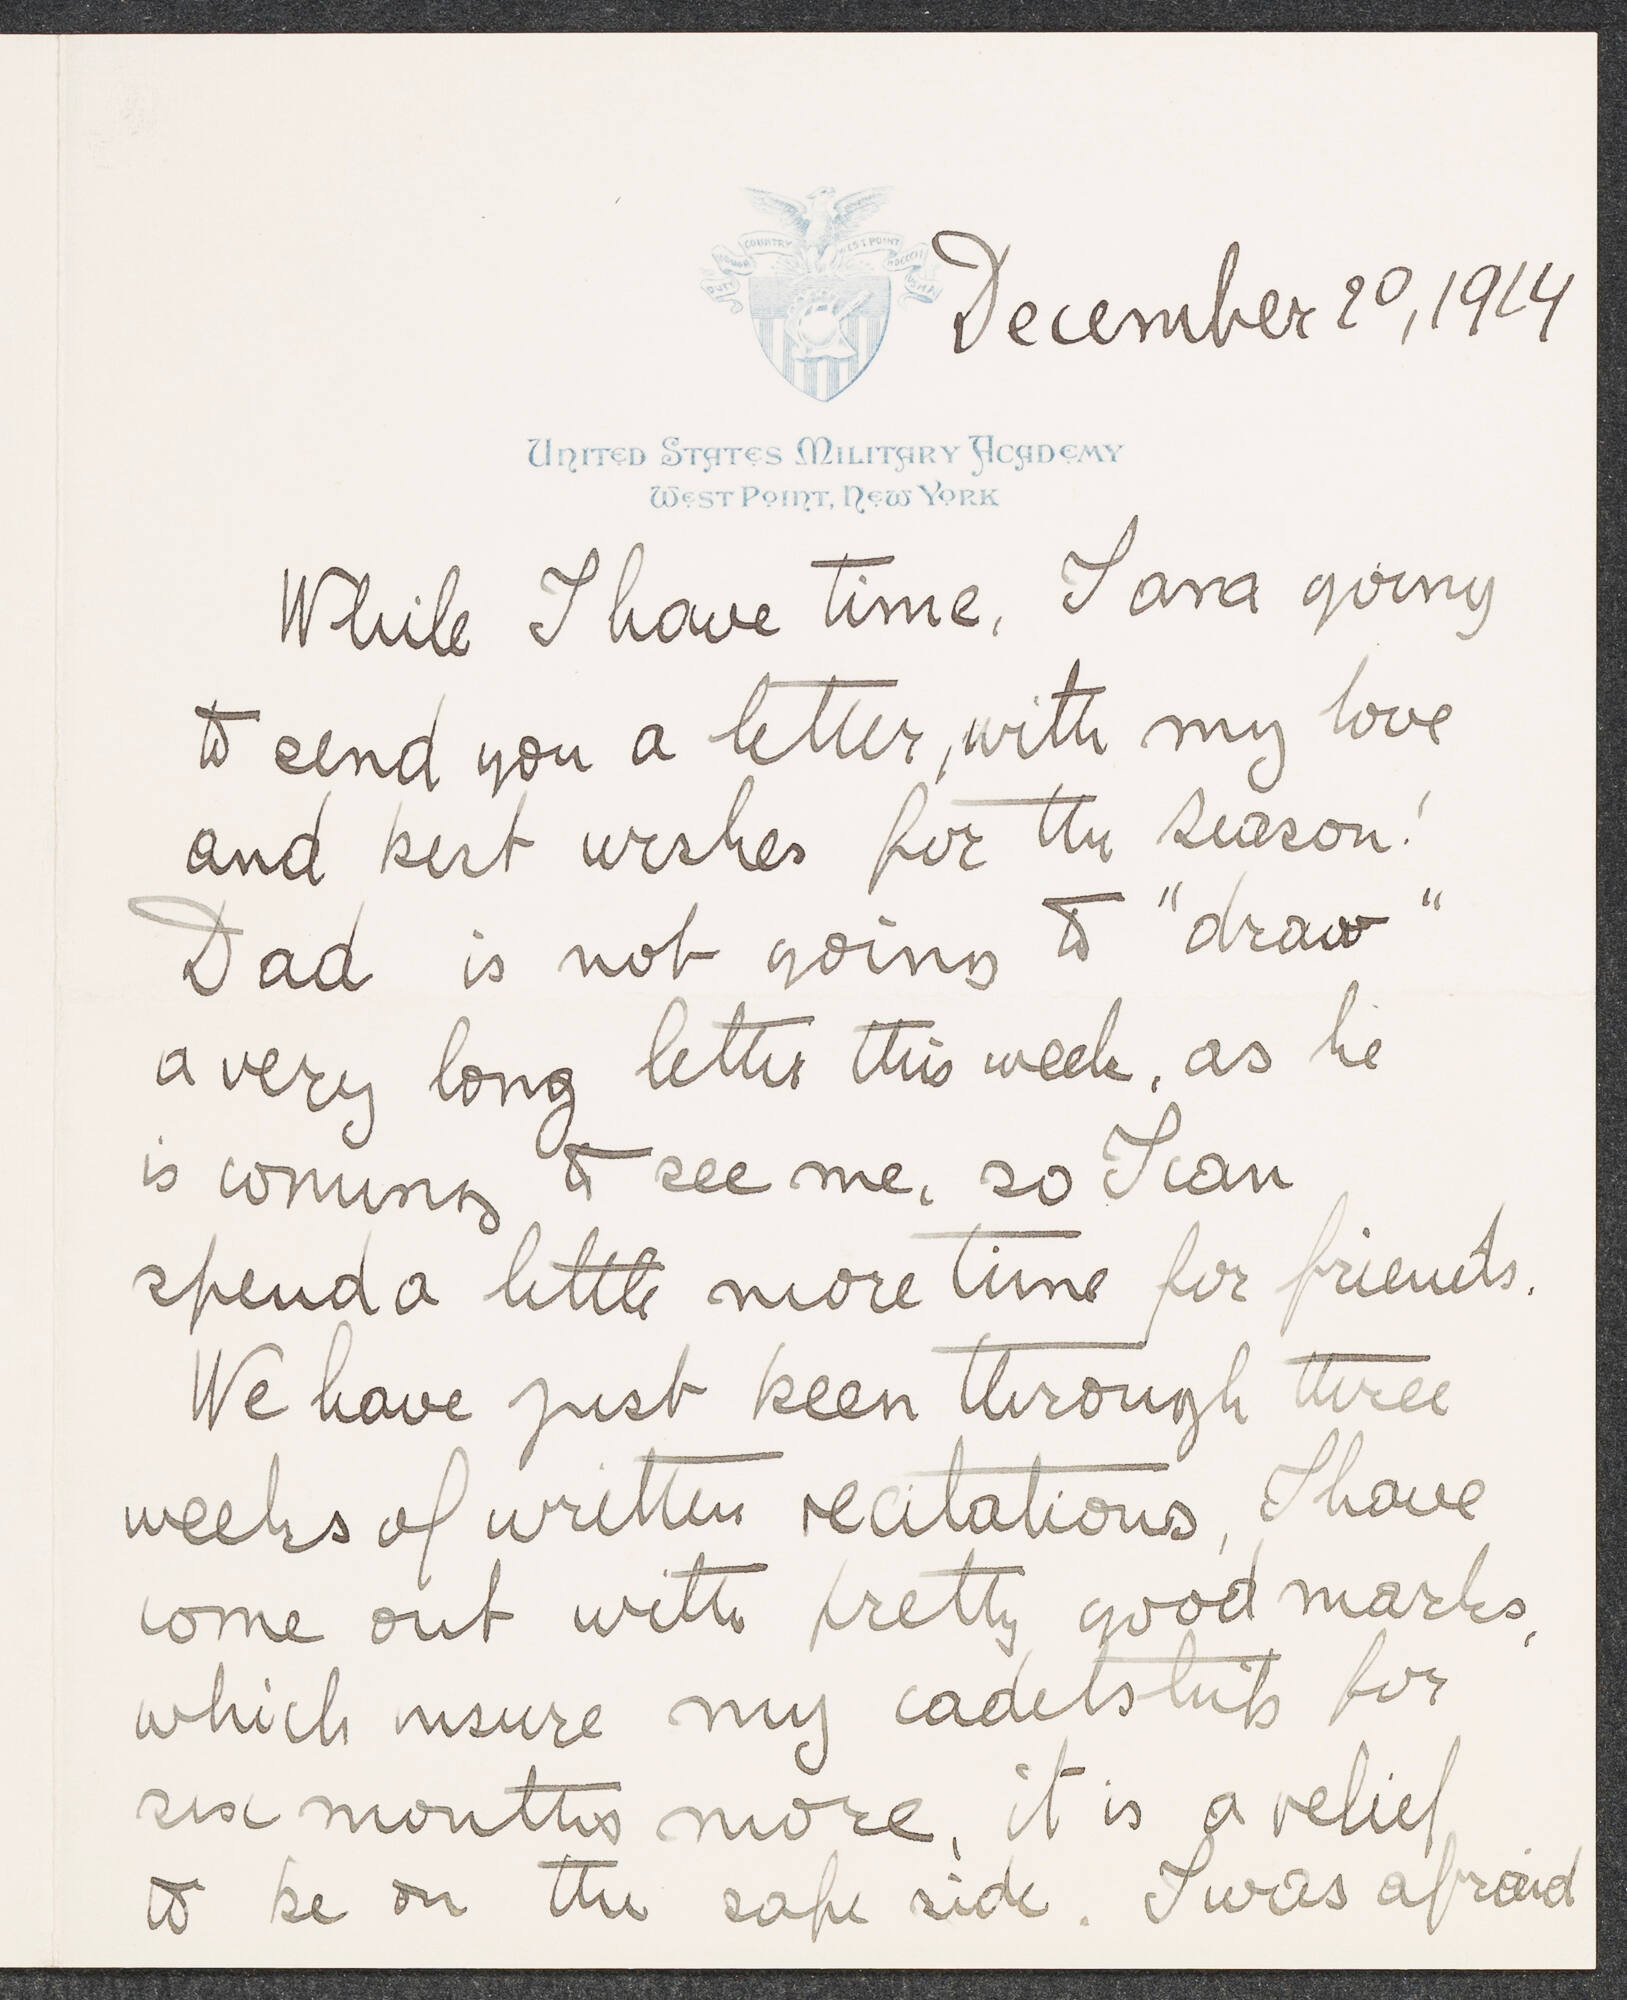 DUTY HONOR COUNTRY WEST POINT MDCCCII USMA
December 20, 1914
United States Military Academy
West Point, New York
While I have time, I am going
to send you a letter, with my love
and best wishes for the season!
Dad is not going to "draw"
a very long letter this week, as he
is coming to see me, so I can
spend a little more time for friends.
We have just been through three
weeks of written recitations, I have
come out with pretty good marks,
which insure my cadetship for
six months more, it is a relief
to be on the safe side. I was afraid